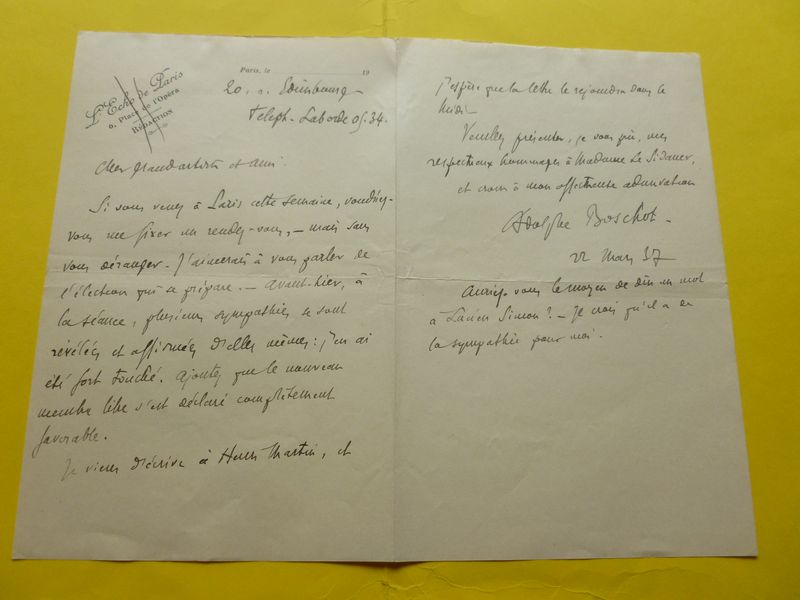 L'Echo de Paris
6, Place de l'Opéra
RÉDACTION
Paris, le 19
20, r. Edimbourg
Téléph. Laborde 05.34.
Cher grand artiste et ami.
Si vous venez à Paris cette semaine, voudriez-
vous me fixer un rendez-vous, — mais sans
vous déranger. J'aimerais à vous parler de
l'élection qui se prépare. — Avant-hier, à
la séance, plusieurs sympathies se sont
révélées et affirmées d'elles-mêmes : j'en ai
été fort touché. Ajoutez que le nouveau
membre libre s'est déclaré complètement
favorable.
Je viens d'écrire à Henri Martin, et
j'espère que la lettre le rejoindra dans le
Midi.
Veuillez présenter, je vous prie, mes
respectueux hommages à Madame Le Sidaner,
et croire à mon affectueuse admiration
Adolphe Boschot.
22 Mars 37
Auriez-vous le moyen de dire un mot
à Lucien Simon ? — Je crois qu'il a de
la sympathie pour moi.